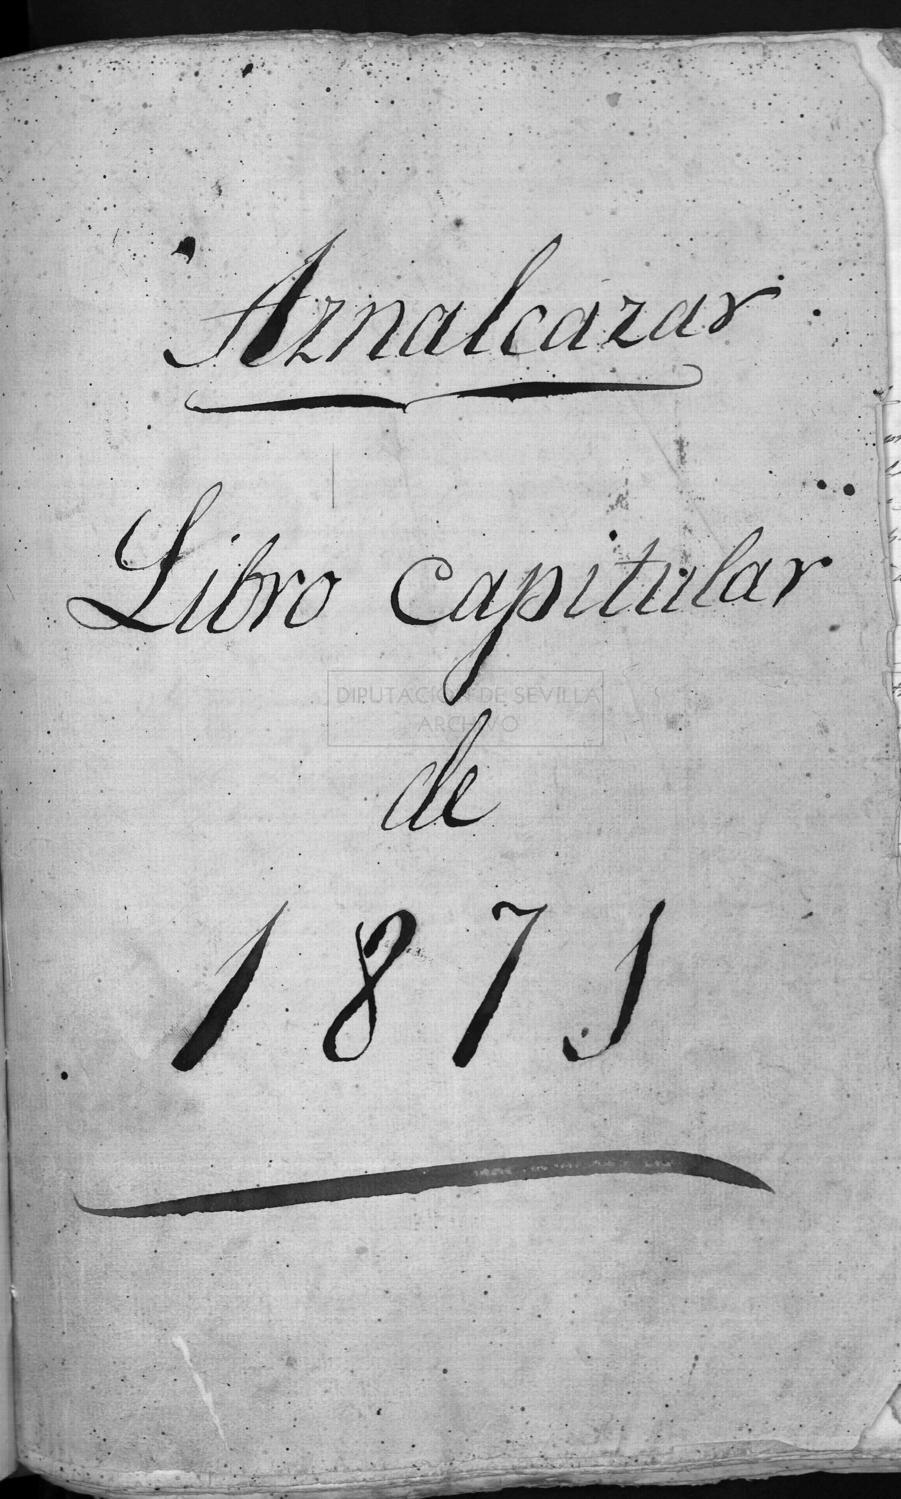 Aznalcazar
Libro capitular
DIPUTACIÓN DE SEVILLA
ARCHIVO
de
1871